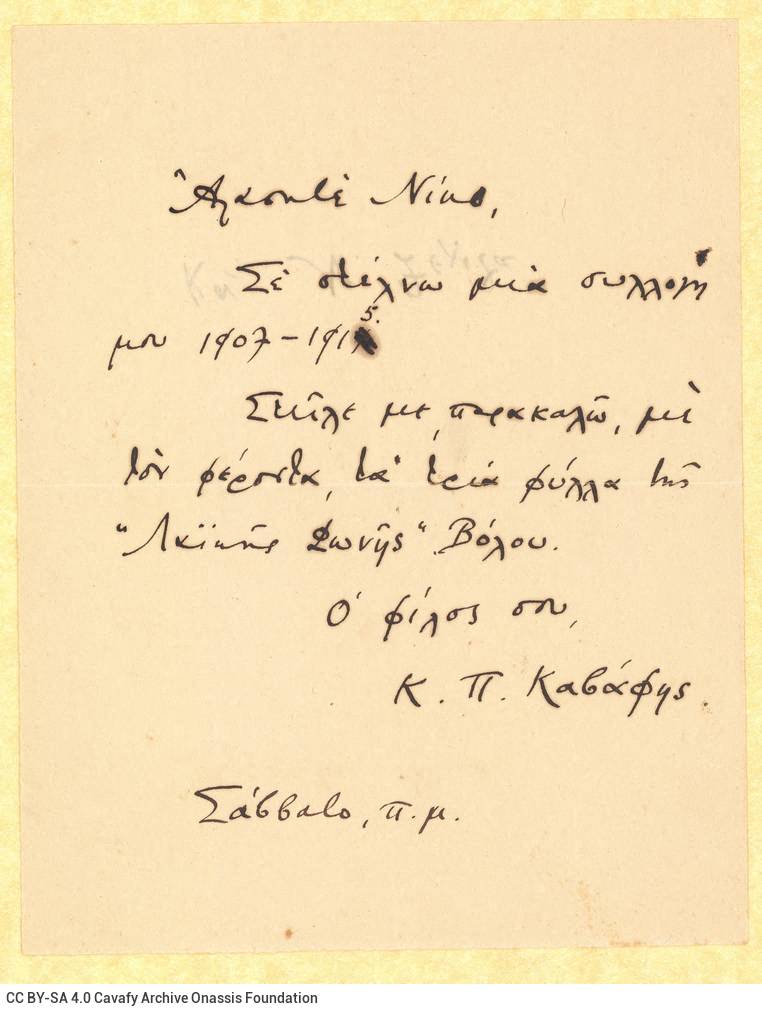 Ἀγαπητὲ Νίκο,
Σὲ στέλνω μιὰ συλλογή
μου 1907-1915.
Στεῖλε με, παρακαλῶ, μὲ
τὸν φέροντα, τὰ τρία φύλλα τῆς
"Λαϊκῆς Φωνῆς" Βόλου.
Ὁ φίλος σου,
Κ. Π. Καβάφης.
Σάββατο, π.μ.
CC BY-SA 4.0 Cavafy Archive Onassis Foundation